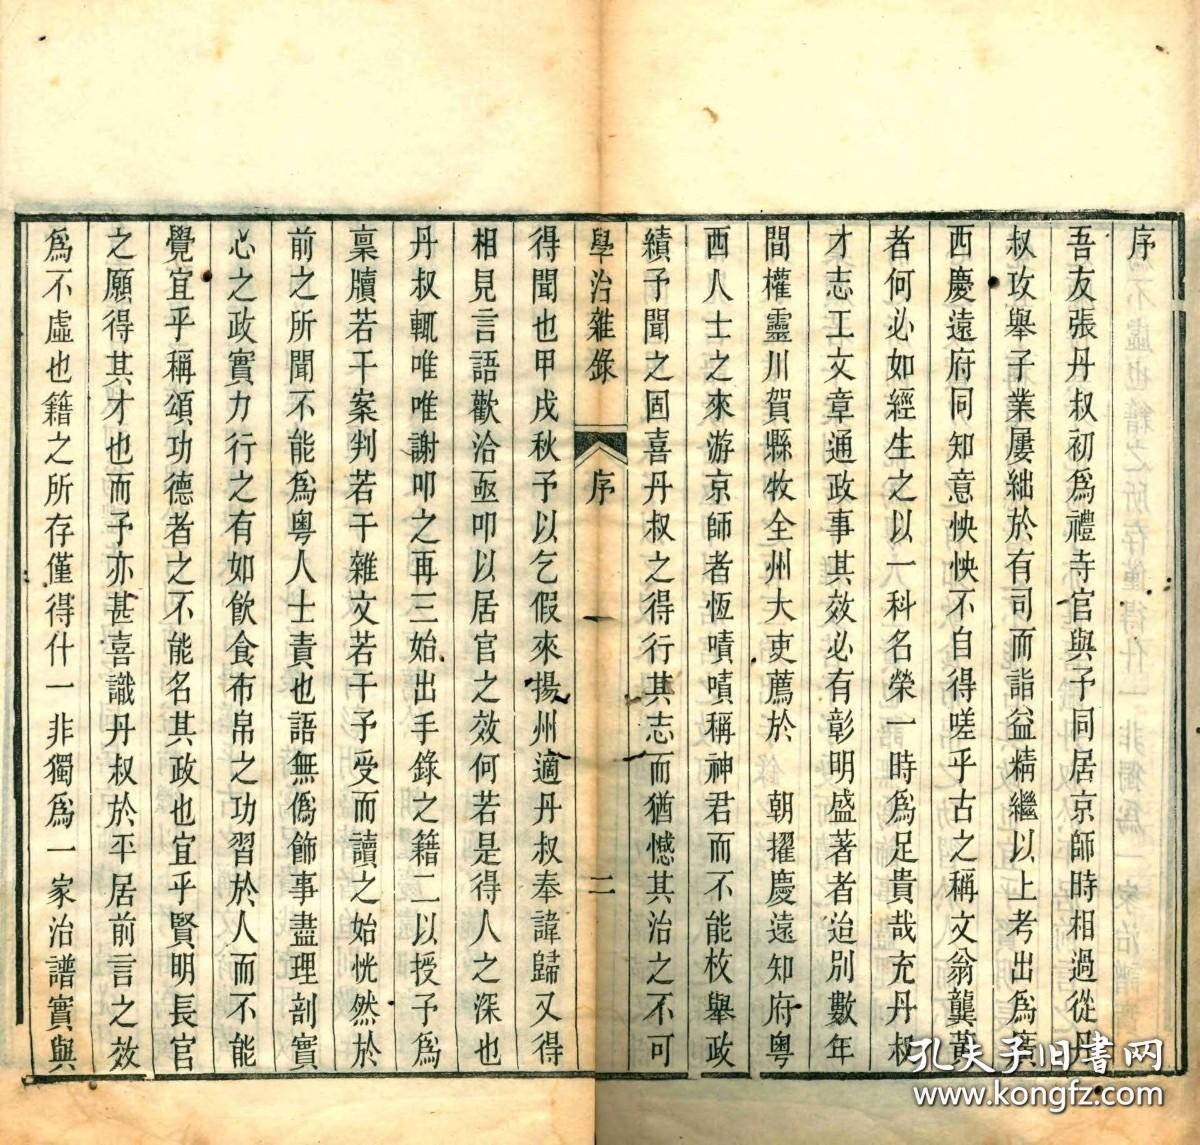 序
吾友張丹叔初為禮寺官與予同居京師時相過從丹
叔攻舉子業屢絀於有司而詣益精繼以上考出為廣
西慶遠府同知意怏怏不自得嗟乎古之稱文翁龔黃
者何必如經生之以一科名榮一時為足貴哉充丹叔
才志工文章通政事其效必有彰明盛著者迨別數年
間權靈川賀縣牧全州大吏薦於　朝擢慶遠知府粵
西人士之來游京師者恆嘖嘖稱神君而不能枚舉政
績予聞之固喜丹叔之得行其志而猶憾其治之不可
學治雜錄　序　二
得聞也甲戌秋予以乞假來揚州適丹叔奉諱歸又得
相見言語歡洽亟叩以居官之效何若是得人之深也
丹叔輒唯唯謝叩之再三始出手錄之籍二以授予為
稟牘若干案判若干雜文若干予受而讀之始恍然於
前之所聞不能為粵人士責也語無偽飾事盡理剖實
心之政實力行之有如飲食布帛之功習於人而不能
覺宜乎稱頌功德者之不能名其政也宜乎賢明長官
之願得其才也而予亦甚喜識丹叔於平居前言之效
為不虛也籍之所存僅得什一非獨為一家治譜實與
孔夫子旧书网
www.kongfz.com